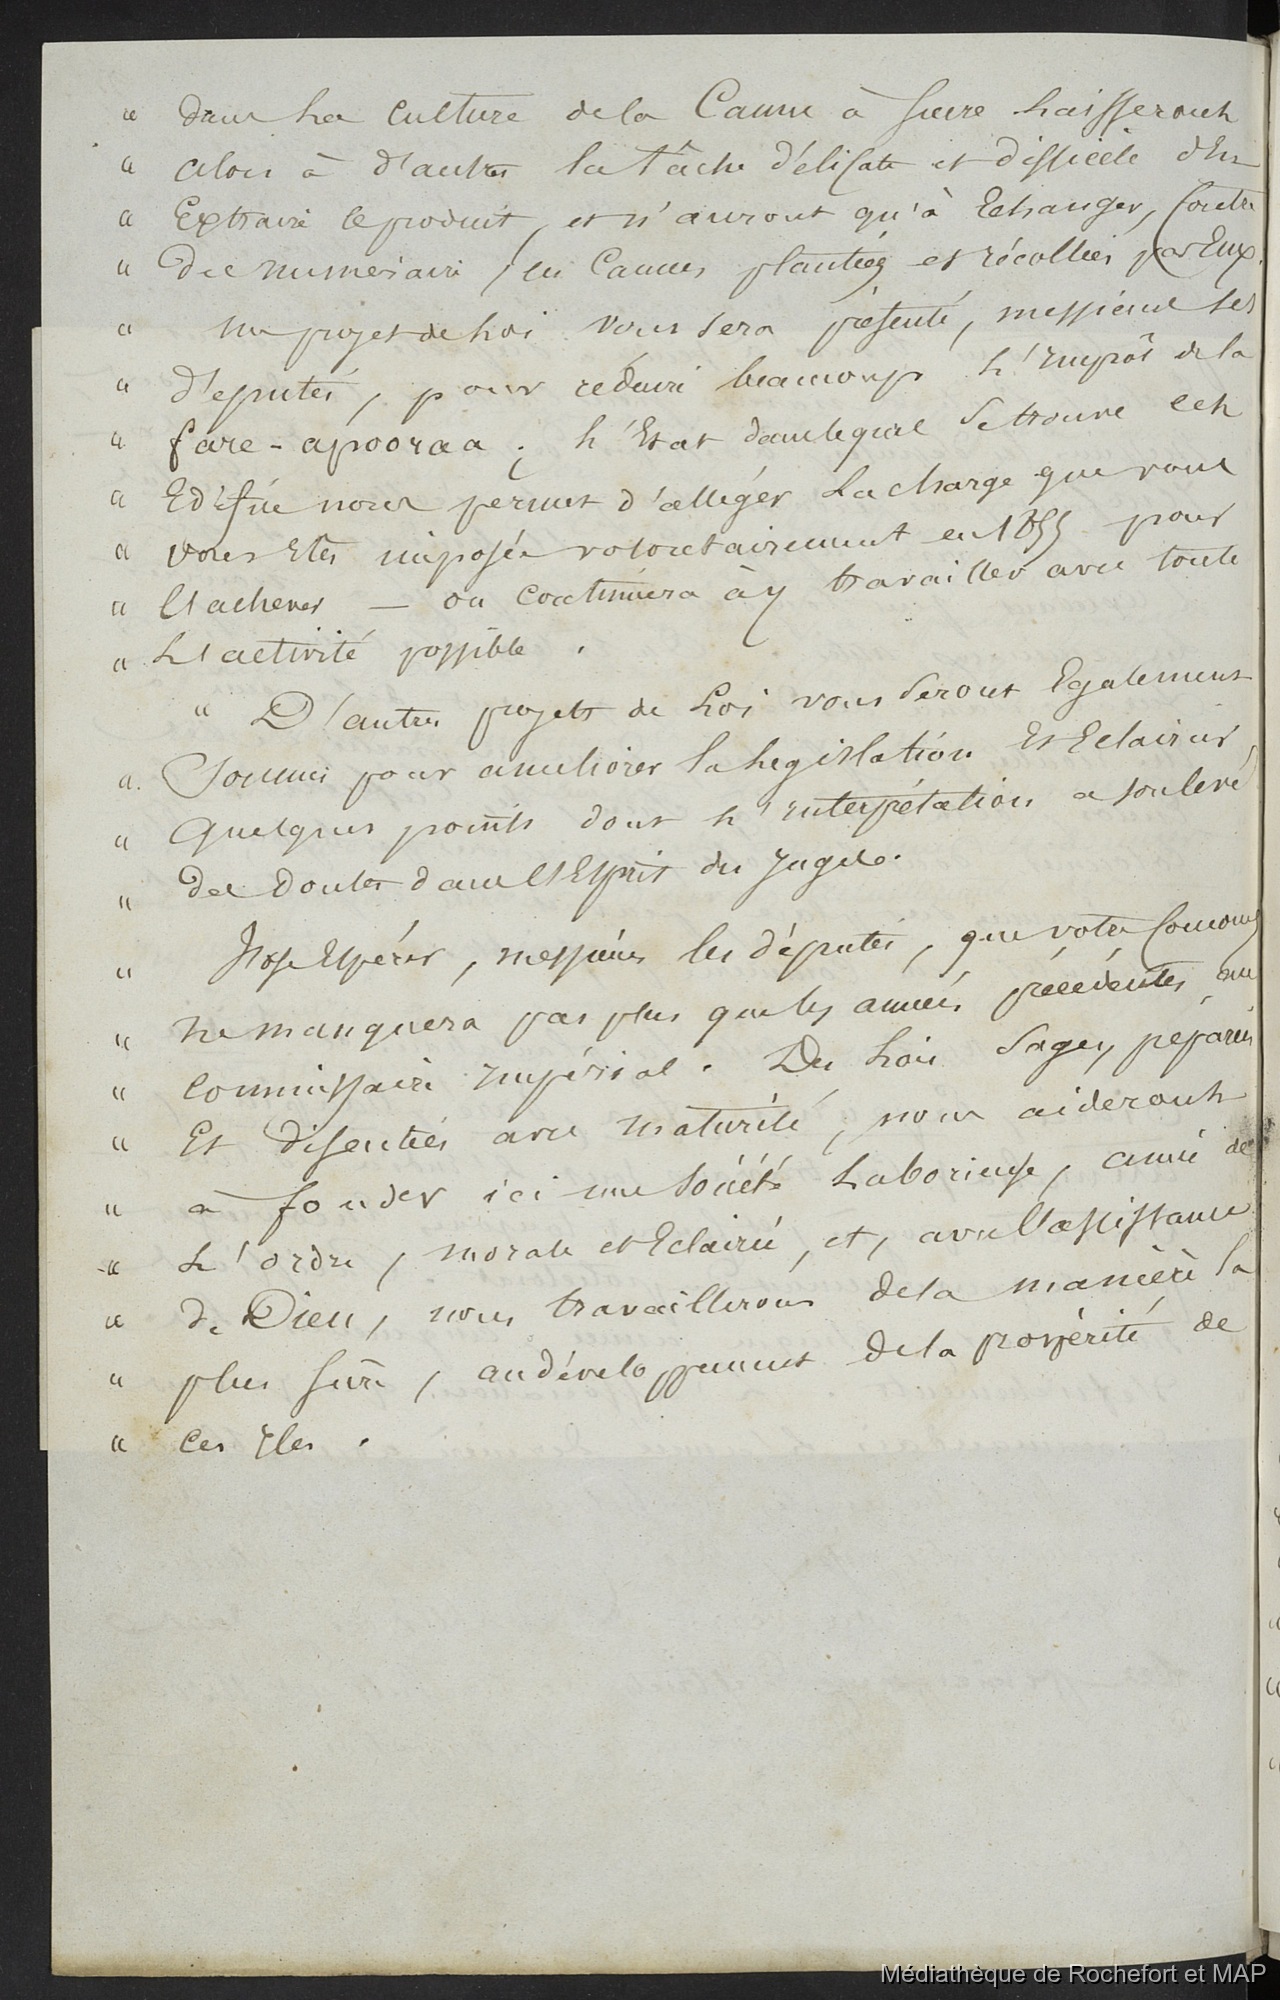 " dans La culture de la Canne à sucre Laisseront
" alors à d'autres la tâche délicate et difficile d'En
" Extraire le produit, et n'auront qu'à Echanger, contre
" des numéraire, les Cannes plantées et récoltées par Eux.
" un projet de Loi vous sera présenté, messieurs les
" députés, pour réduire beaucoup L'impôt de la
" fare-apooraa ; L'Etat dans lequel se trouve cet
" Edifice nous permet d'alléger La charge que vous
" vous êtes imposée volontairement en 1855 pour
" l'achever — on continuera à y travailler avec toute
" L'activité possible.
" D'autres projets de Loi vous seront Egalement
" Soumis pour améliorer la Législation Et Eclaircir
" Quelques points dont L'interprétation a soulevé
" des Doutes dans l'Esprit des juges.
" J'ose Espérer, messieurs les députés, que votre concours
" ne manquera pas plus que les années précédentes, au
" commissaire impérial. Des Lois sages, préparées
" Et discutées avec maturité, nous aideront
" à fonder ici une société Laborieuse, amie de
" L'ordre, morale et Eclairée, et, avec l'assistance
" de Dieu, nous travaillerons de la manière la
" plus sûre, au développement de la prospérité de
" ces îles.
Médiathèque de Rochefort et MAP